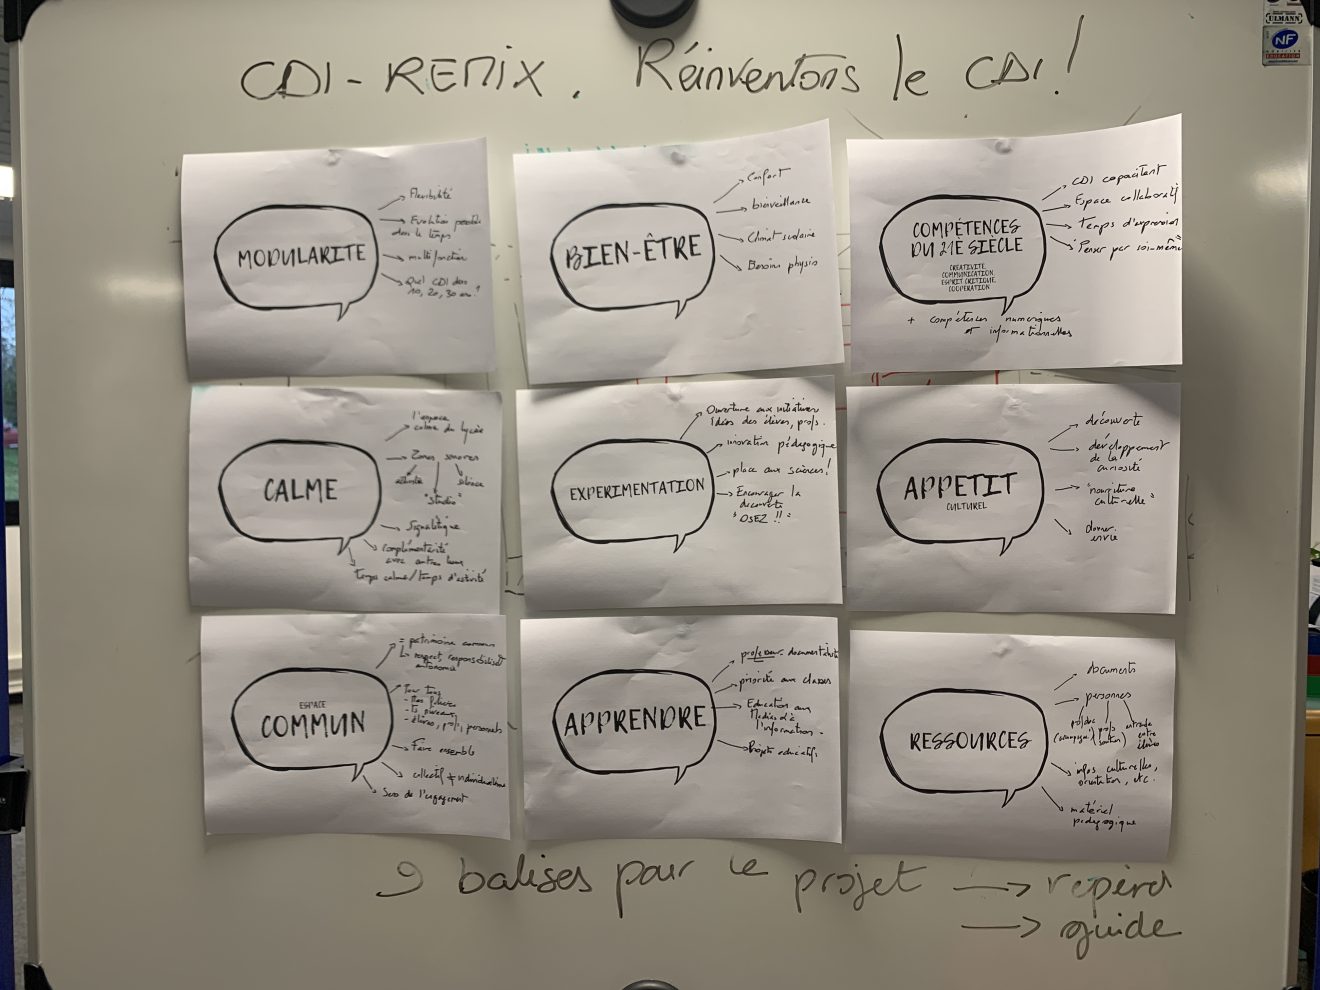 CDI-REMIX. Réinventons le CDI!
ULMANN
NF
MODULARITE
Flexibilité
Evolution possible
dans le temps
multifonction
Quel CDI dans
10, 20, 30 ans?
BIEN-ÊTRE
Confort
bienveillance
Climat scolaire
Besoins physio
COMPÉTENCES
DU 21E SIÈCLE
CREATIVITE,
COMMUNICATION,
ESPRIT CRITIQUE,
COOPERATION
CDI capacitant
Espace collaboratif
Temps d'expression
"Penser par soi-même"
+ compétences numériques
et informationnelles
CALME
l'espace
calme du lycée
Zones sonores
activité
silence
"Studio"
Signalétique
complémentérité
avec autres lieux
Temps calme/temps d'activité
EXPERIMENTATION
Ouverture aux initiatives
Idées des élèves, profs.
inovation pédagogique
place aux sciences!
Encourager la
découverte
"OSEZ!!"
APPETIT
CULTUREL
découverte
développement
de la
curiosité
"nourriture
culturelle"
donner
envie
ESPACE
COMMUN
= patrimoine commun
respect, responsabilisat°
autonomie
Pour Tous
- élèves, profs, personnels
Faire ensemble
collectif ≠ individualisme
Sens de l'engagement
APPRENDRE
professeur documentaliste
priorité aux classes
Education aux
Médias et à
l'information.
Projets éducatifs
RESSOURCES
documents
personnes
profdoc
(accompagne)
profs
(soutien)
entraide
entre
élèves
infos culturelles,
orientation, etc.
matériel
pédagogique
9 balises pour le projet → repère
→ guide